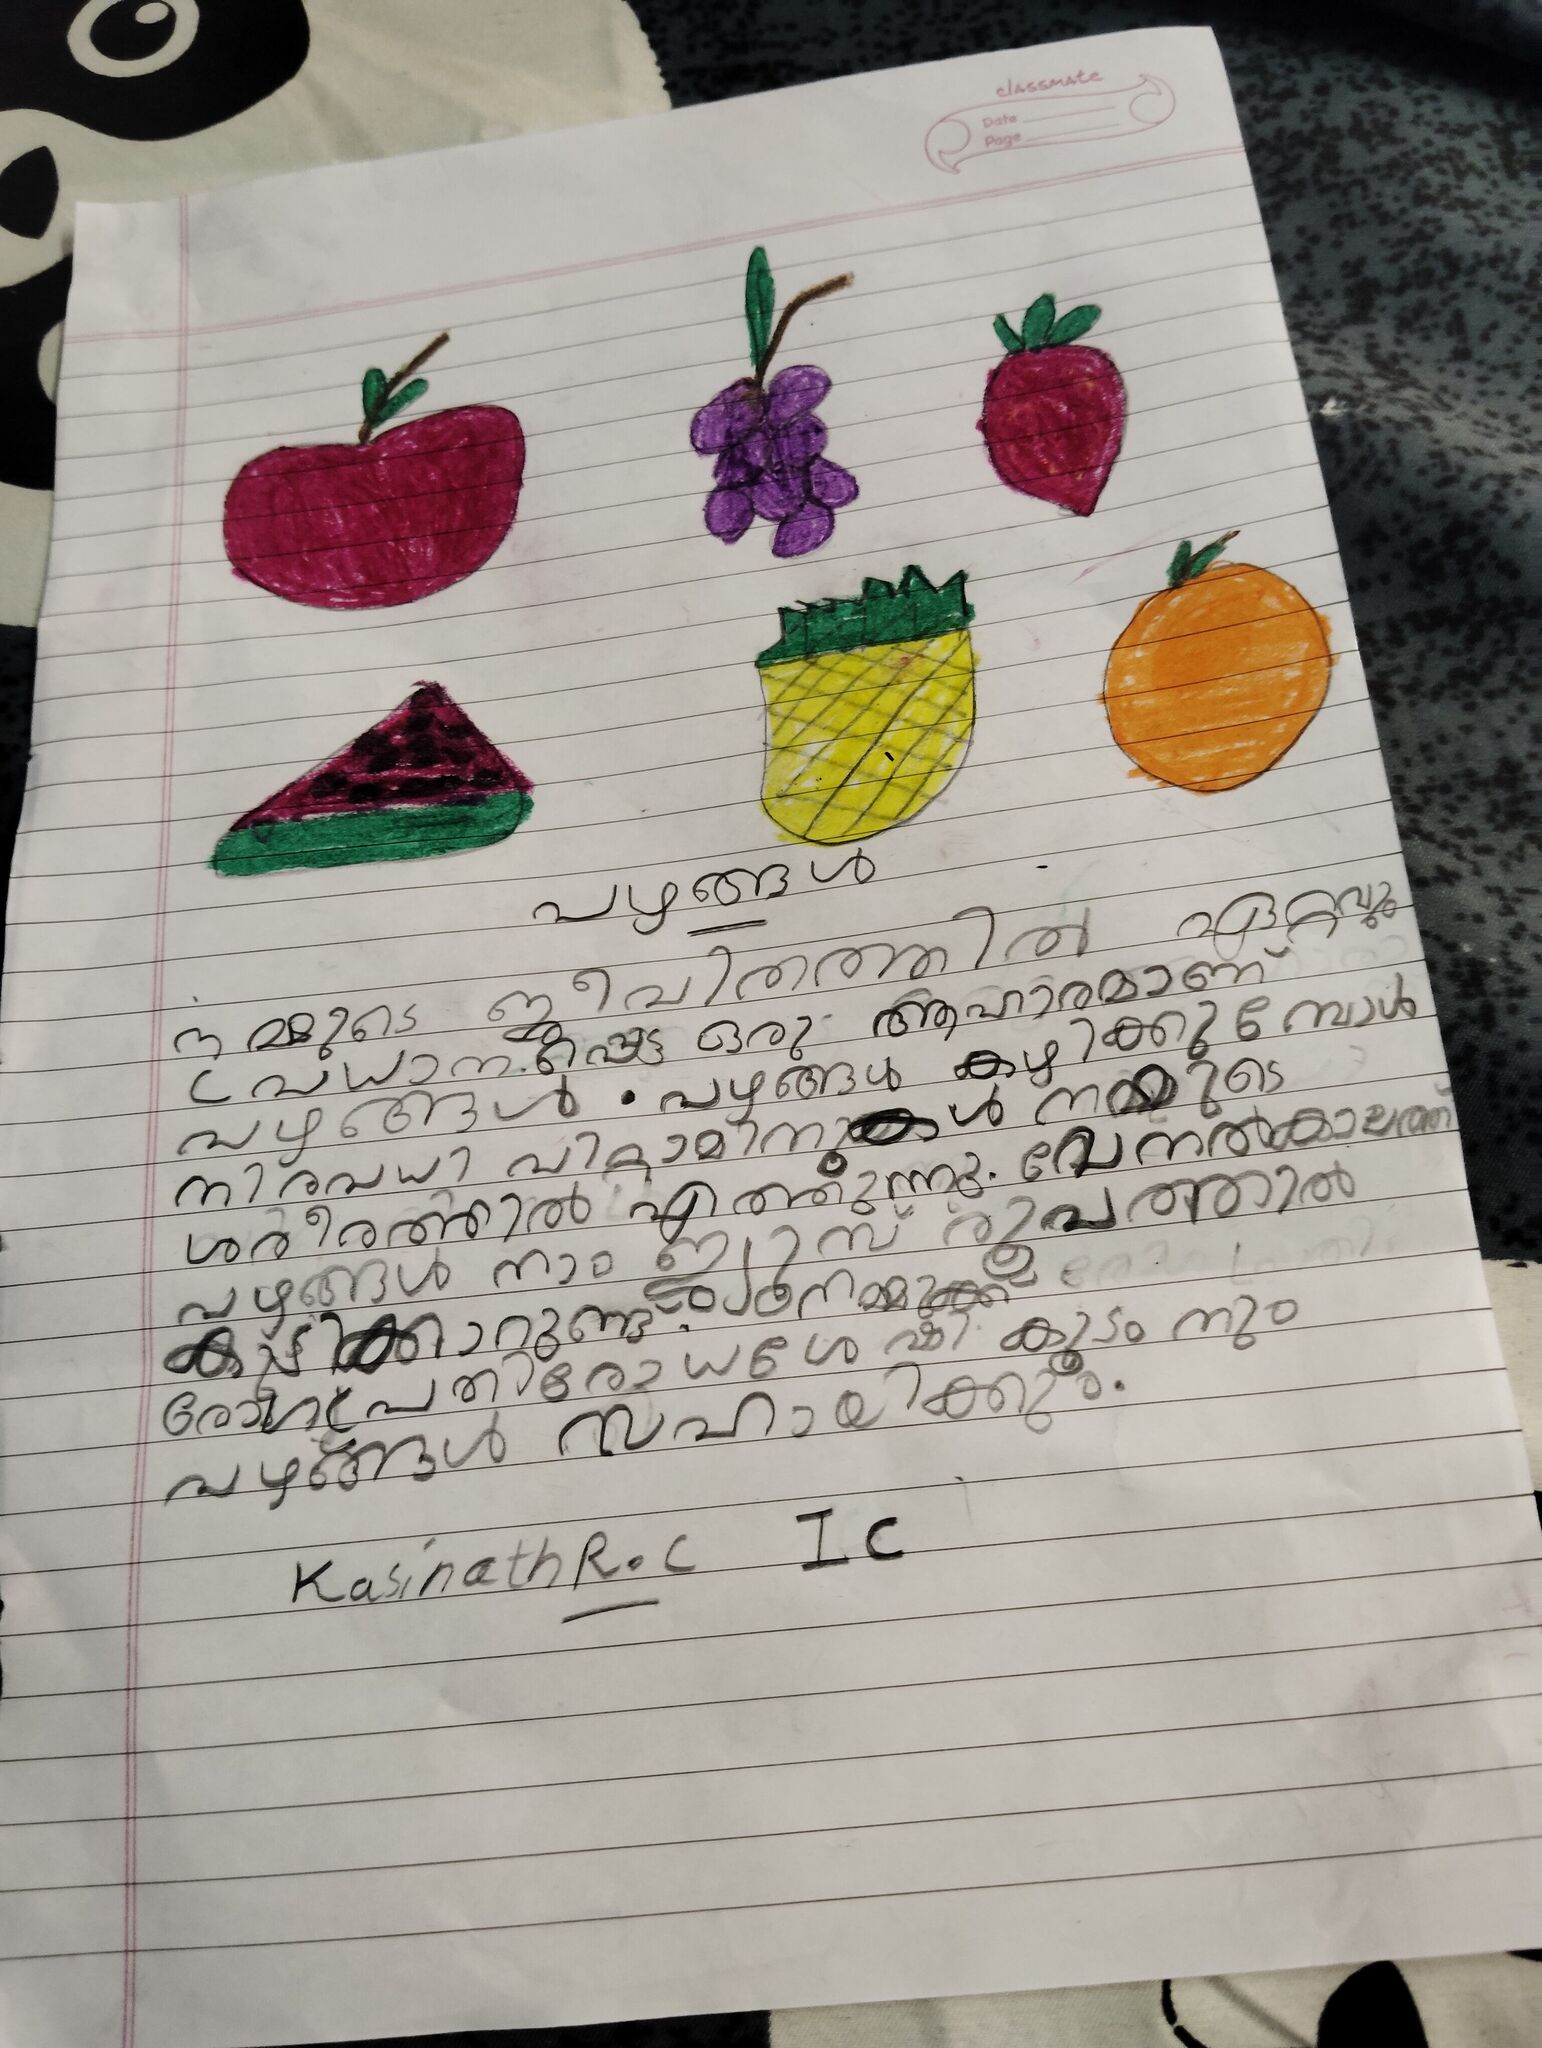 classmate
Date
Page
പഴങ്ങൾ
നമ്മുടെ ജീവിതത്തിൽ ഏറ്റവും
പ്രധാനപ്പെട്ട ഒരു ആഹാരമാണ്
പഴങ്ങൾ. പഴങ്ങൾ കഴിക്കുമ്പോൾ
നിരവധി വിറ്റാമിനുകൾ നമ്മുടെ
ശരീരത്തിൽ എത്തുന്നു. വേനൽക്കാലത്ത്
പഴങ്ങൾ നാം ജ്യൂസ് രൂപത്തിൽ
കുടിക്കാറുണ്ട്. നമ്മുക്ക്
രോഗപ്രതിരോധശേഷി കൂട്ടാനും
പഴങ്ങൾ സഹായിക്കും.
Kasinath R.C I C